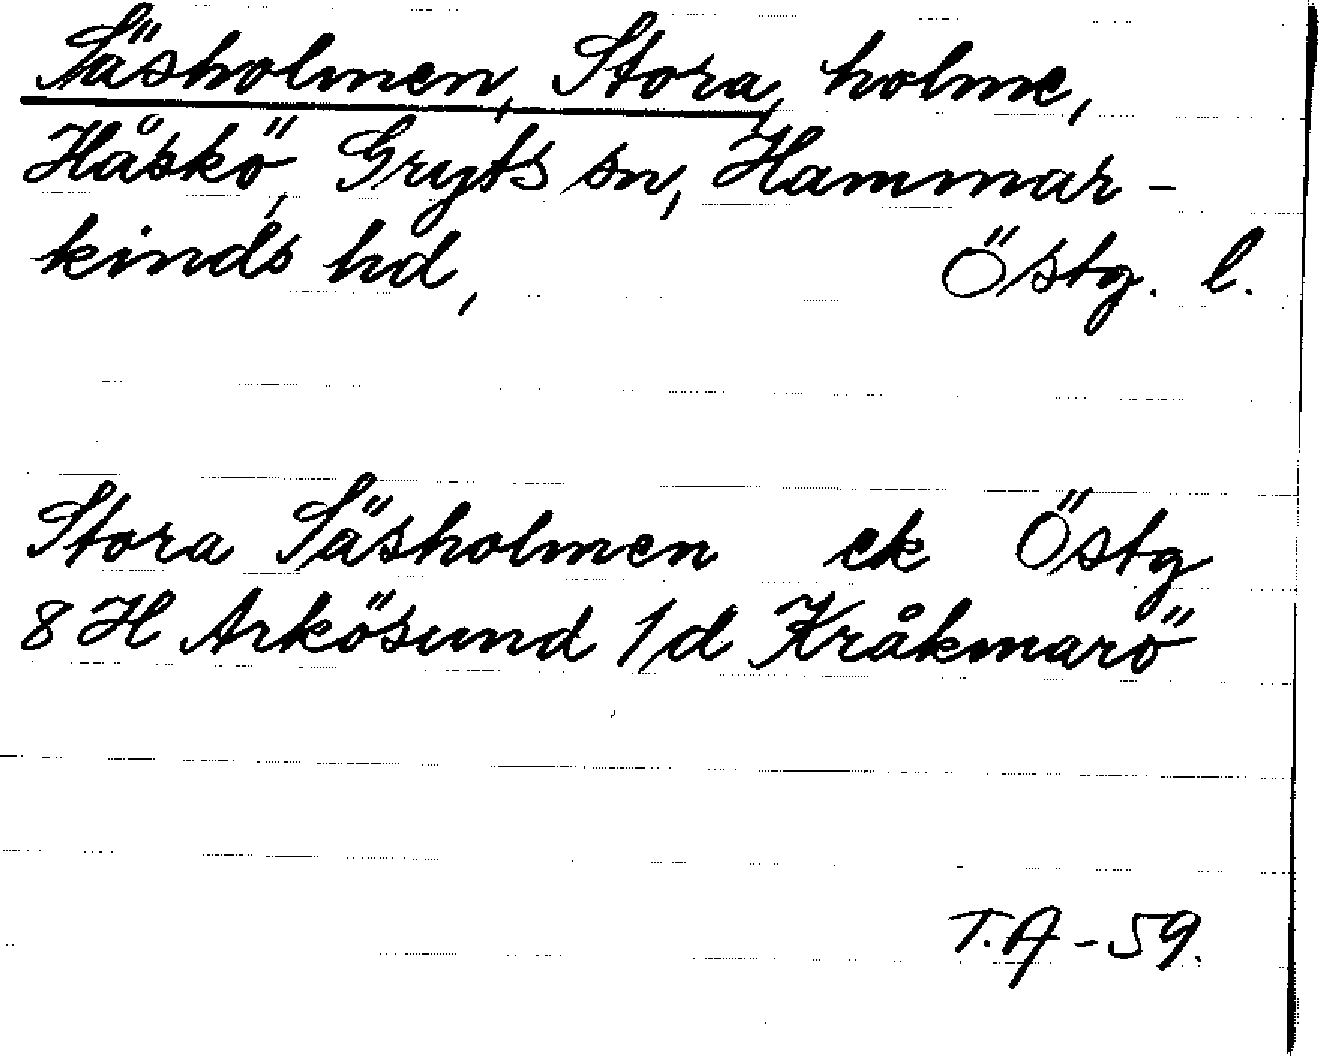 Säsholmen, Stora, holme,
Håskö, Gryts sn, Hammar-
kinds hd, Östg. l.
Stora Säsholmen ek Östg
8 H Arkösund 1/d Kråkmarö
T.A-59.